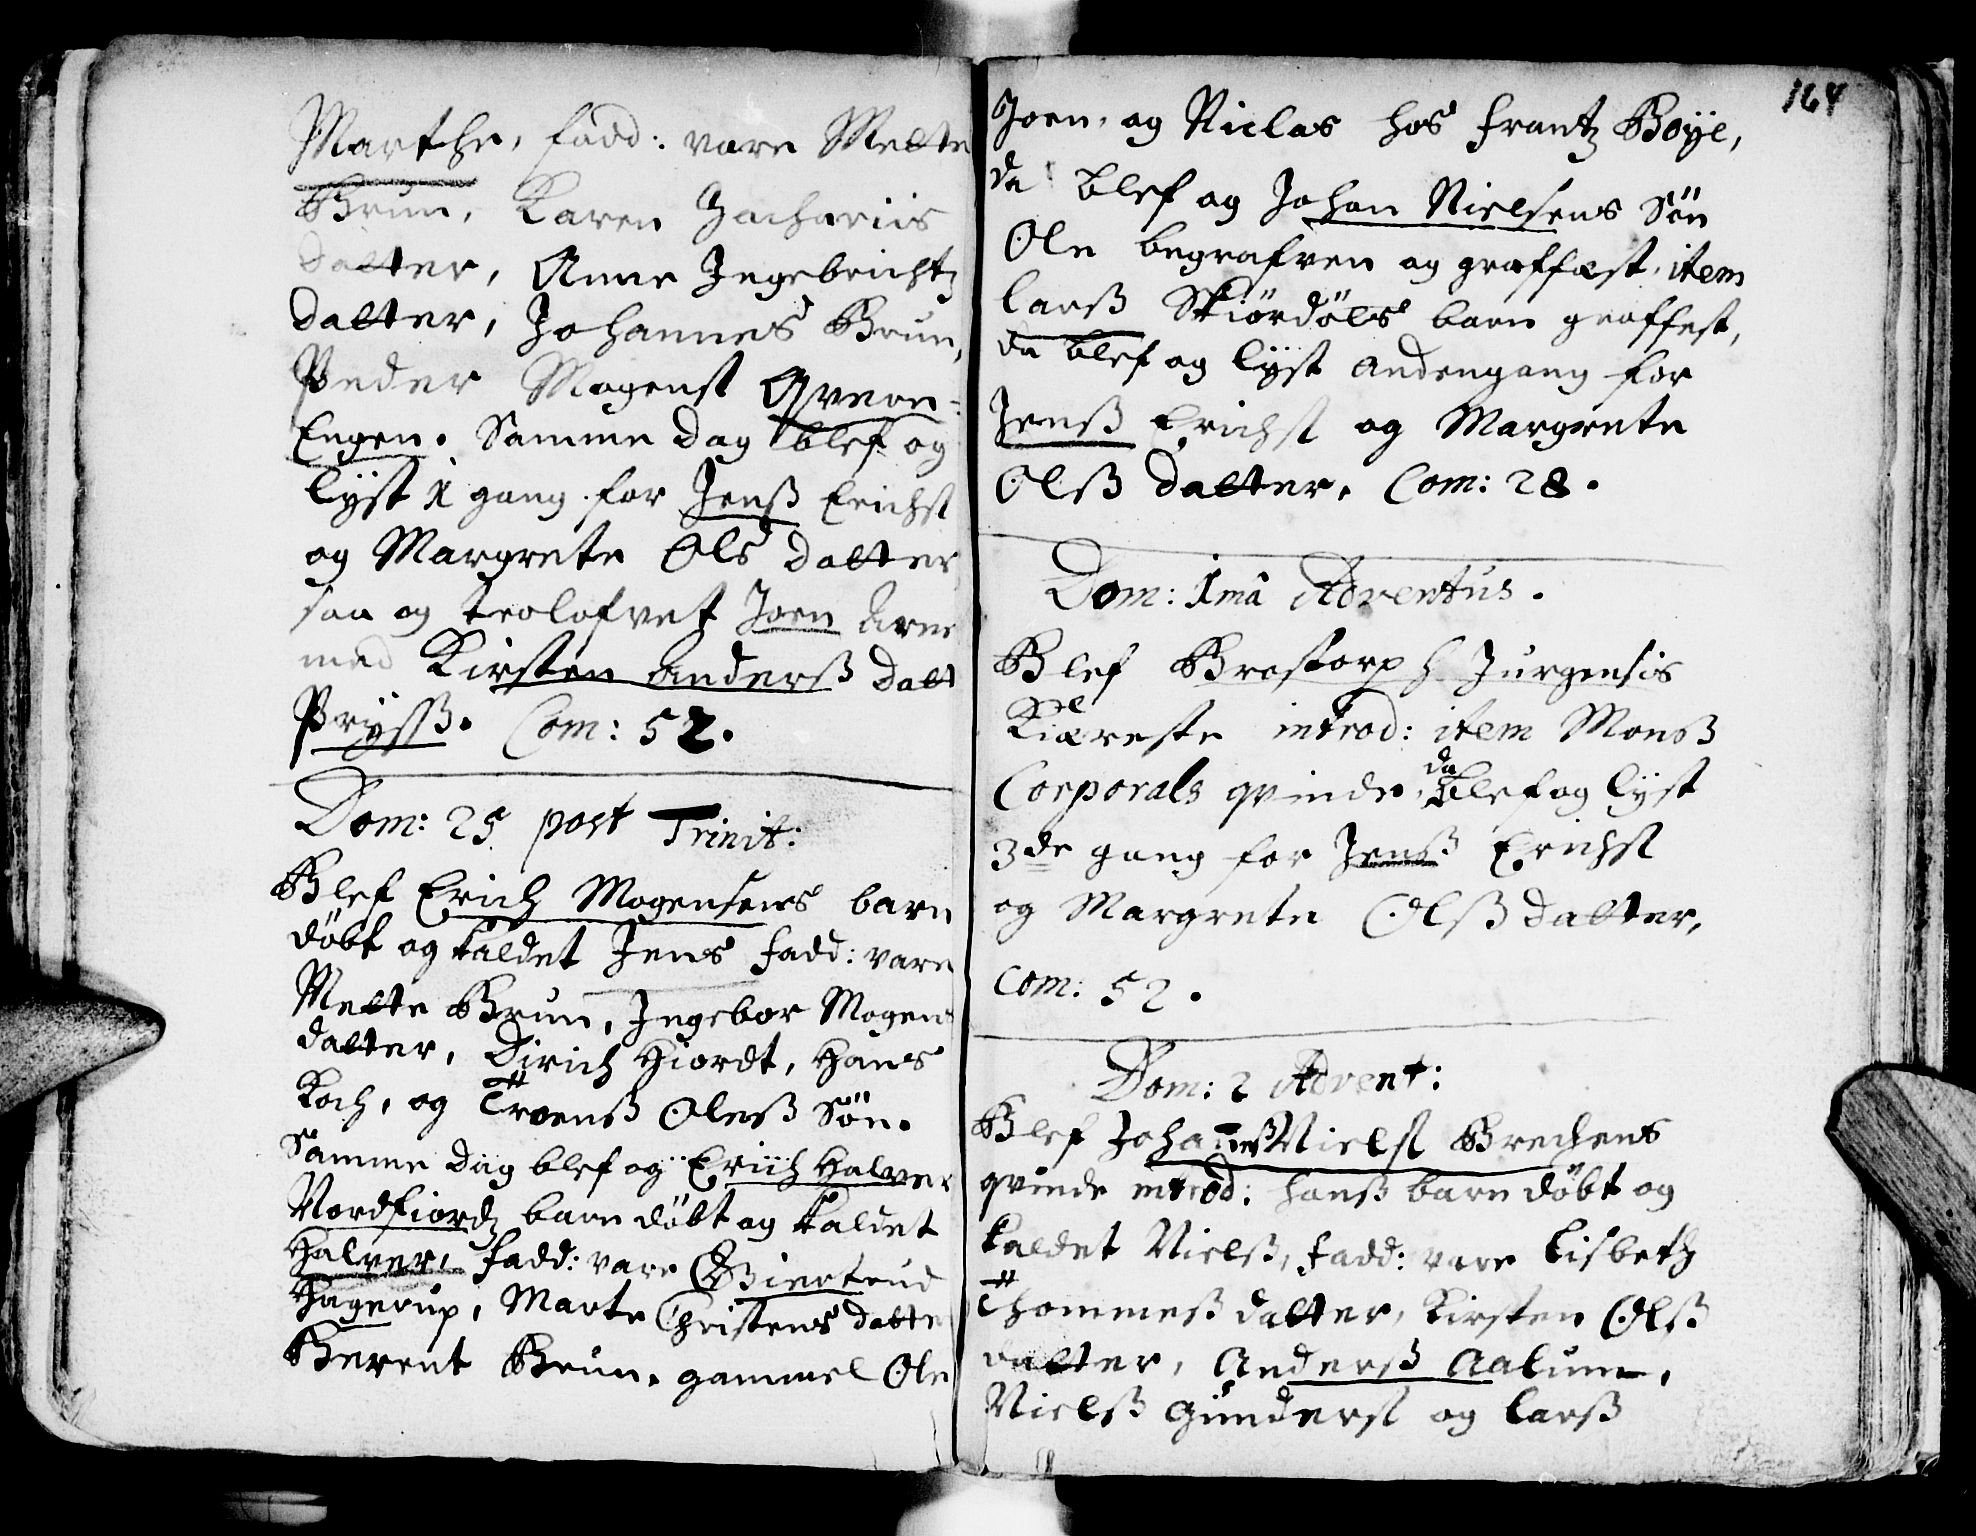 Marthe, fadd: vare Mette
Brun, Karen Zachariis
datter, Anne Ingebrichtz
datter, Johannes Brun,
Peder Mogenst Qveon-
Engen. Samme dag blef og
lyst 1 gang for Jenß Erichst
og Margrete Ols datter
saa og trolofvet Joen Arne
med Kirsten Anderß datt
Pryssß. Com: 52.
Dom: 25 post Trinit:
Blef Erich Mogensens barn
døbt og kaldet Jens fadd: vare
Mette Brun, Ingebor Mogens
datter, Dirich Hiordt, Hans
Koch, og Troenß Oleß Søn.
Samme dag blef og Erich Halver
Nordfiordz barn døbt og kaldet
Halver, fadd: vare Giertrud
Hagerup, Marte Christens datte
Berent Brun, gammel Ole
164
Joen, og Niclas hos Frantz Boye,
da blef og Johan Nielsens Søn
Ole begrafven og graffæst, item
Larß Skiørdøls barn graffest,
da blef og lyst anden gang for
Jenß Erichst og Margrete
Olß datter. Com: 28.
Dom: 1mâ Adventus.
Blef Brostorph Jurgensis
Kiæreste introd: item Monß
Corporals qvinde, da blef og lyst
3de gang for Jenß Erichst
og Margrete Olß datter,
Com: 52.
Dom: 2 Advent:
Blef Johanneß Nielst Brechens
qvinde introd: hanß barn døbt og
kaldet Nielß, fadd: vare Lisbeth
Thommeß datter, Kirsten Olß
datter, Anderß Aalum,
Nielß Gunderst og Larß